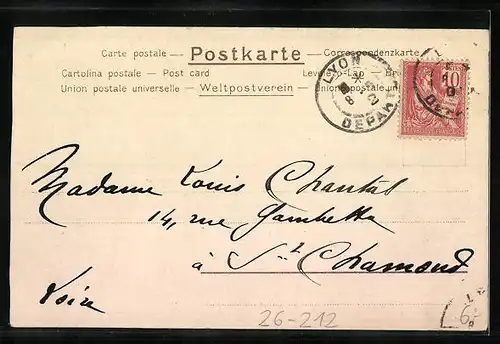 Carte postale — Postkarte — Correspondenzkarte
Cartolina postale — Post card
Union postale universelle — Weltpostverein —
LYON
DEPART
10
Madame Louis Chantal
14, rue Gambetta
à St Chamond
Loire
26-212
6.-